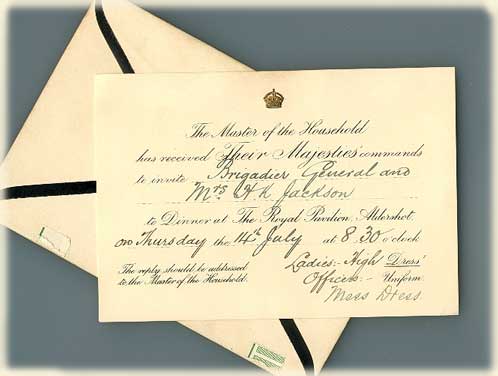 The Master of the Household
has received Their Majesties' commands
to invite Brigadier General and
Mrs H K Jackson
to Dinner at The Royal Pavilion, Aldershot,
on Thursday the 14th July at 8.30 o'clock
Ladies:- High Dress
The reply should be addressed
to the Master of the Household.
Officers:- Uniform
Mess Dress